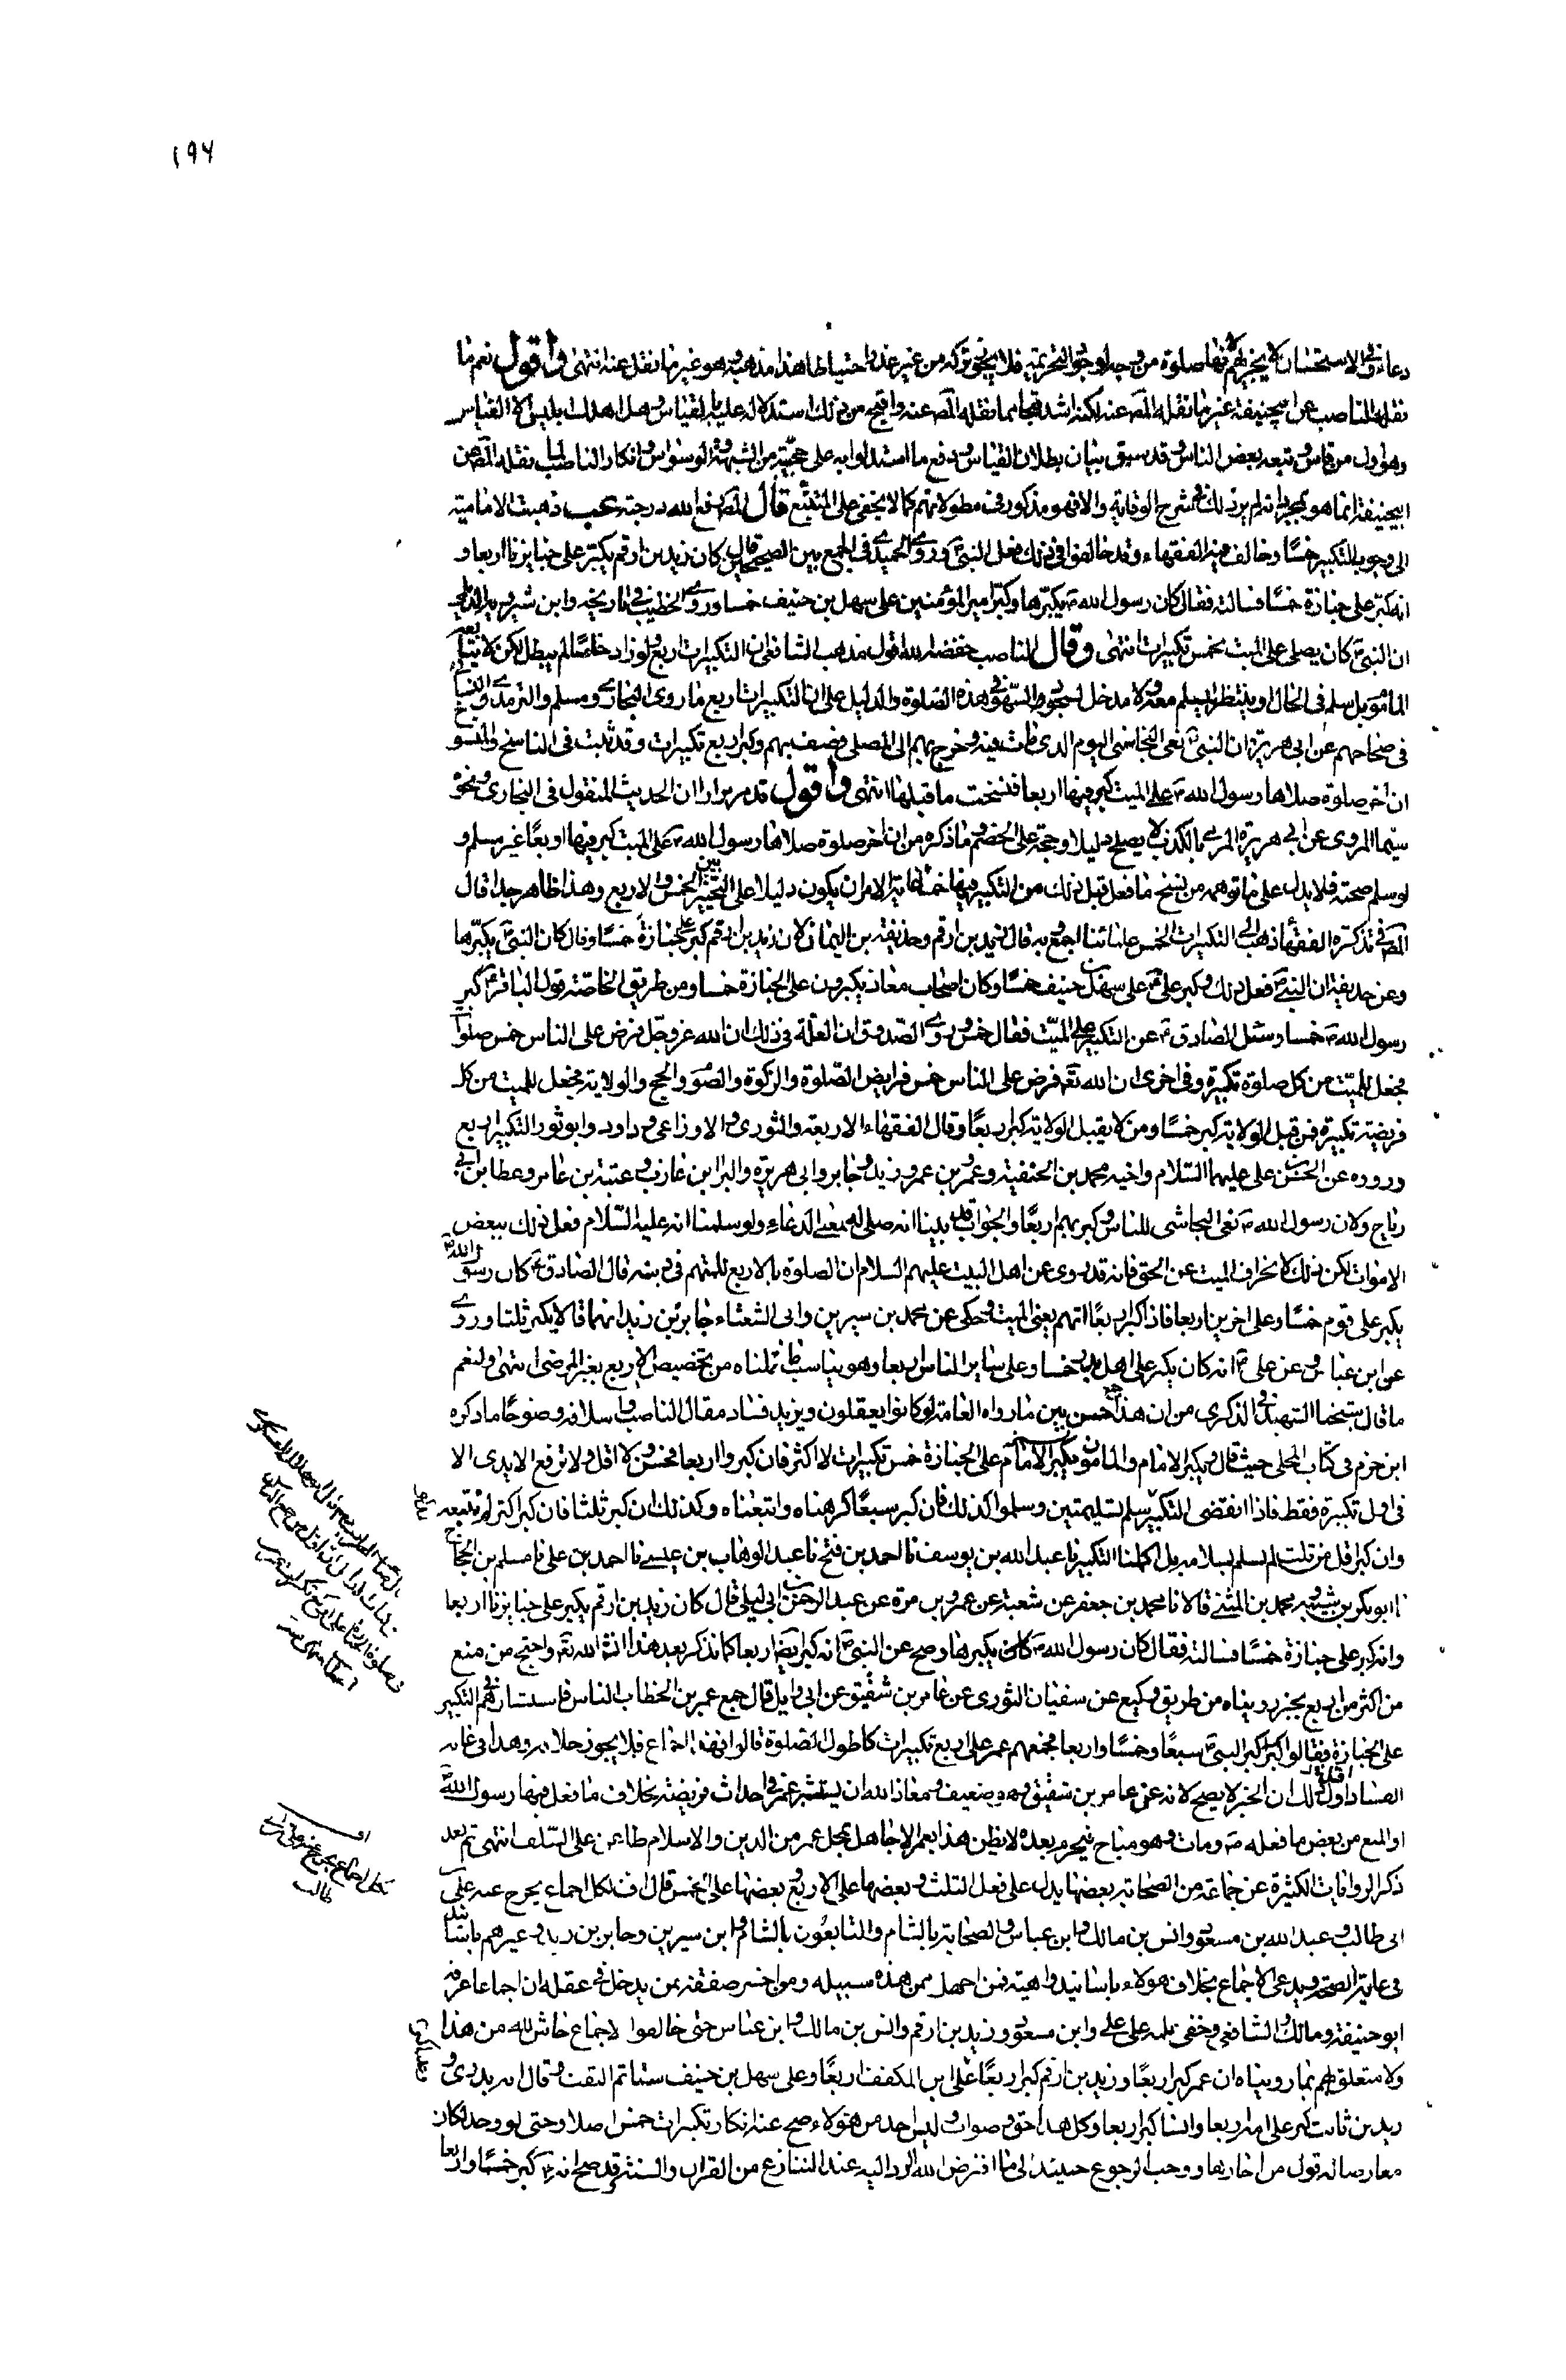 ١٩٧
دعاء وفى الاستحسان لا يجزيهم لانها صلوة من وجه لوجود التحريمة فلا يجوز تركه من غير عذر احتياطا هذا مذهبه وهو غير ما نقل عنه انتهى واقول نعم ما
نقله الناصب عن ابيحنيفة غير ما نقله المصـ عنه لكنه اشد قبحا مما نقله المصـ عنه واقبح من ذلك استدلاله عليه بالقياس وهل اهلك ابليس الا القياس
وهو اول من قاس وتبعه بعض الناس وقد سبق بيان بطلان القياس ودفع ما استدلوا به على حجيته من الشبهة والوسواس وانكار الناصب لما نقله المصـ عن
ابيحنيفة انما هو لم يرد ذلك فى شرح الوقاية والا فهو مذكور فى مطولاتهم كما لا يخفى على المتتبع قال المصـ رفع الله درجته ذهبت الامامية
الى وجوب التكبير خمسا وخالف فيه الفقهاء وقد خالفوا فى ذلك فعل النبى وروى الحميدى فى الجمع بين الصحيحين قال كان زيد بن ارقم يكبر على جنايزنا اربعا و
انه كبر على جنازة خمسا فسالته فقال كان رسول الله ص يكبرها وكبر امير المؤمنين على سهل بن حنيف خمسا وروى الخطيب فى تاريخه وابن شيرويه الديلمى
ان النبى ص كان يصلى على الميت بخمس تكبيرات انتهى وقال الناصب خفضه الله اقول مذهب الشافعى ان التكبيرات اربع ولو زاد خامسا لم يبطل لكن لا يتابعه
المأموم بل يسلم فى الحال او ينتظر ليسلم معه ولا مدخل لسجود السهو فى هذه الصلوة والدليل على ان التكبيرات اربع ما روى البخارى ومسلم والترمذى والنسائى
فى صحاحهم عن ابى هريرة ان النبى ص نعى النجاشى اليوم الذى مات فيه وخرج بهم الى المصلى وصف بهم وكبر اربع تكبيرات وقد ثبت فى الناسخ والمنسوخ
ان اخر صلوة صلاها رسول الله ص على الميت كبر فيها اربعا فنسخت ما قبلها انتهى واقول قد مر مرارا ان الحديث المنقول فى البخارى ونحوه
سيما المروى عن ابى هريرة المرمى بالكذب لا يصلح دليلا وحجة على الخصم وما ذكره من ان اخر صلوة صلاها رسول الله ص على الميت كبر فيها اربعا غير مسلم و
لو سلم صحته فلا يدل على ما توهمه من نسخ ما فعل قبل ذلك من التكبير فيها خمسا غاية الامر ان يكون دليلا على التخيير بين الخمس والاربع وهذا ظاهر جدا قال
المصـ فى تذكرة الفقهاء ذهب الى التكبيرات الخمس علمائنا اجمع وبه قال زيد بن ارقم وحذيفة بن اليمان لان زيد بن ارقم كبر على جنازة خمسا وقال كان النبى ص يكبرها
وعن حذيفة ان النبى ص فعل ذلك وكبر على ع على سهل بن حنيف خمسا وكان اصحاب معاذ يكبرون على الجنازة خمسا ومن طريق الخاصة قول الباقر ع كبر
رسول الله ص خمسا وسئل الصادق ع عن التكبير على الميت فقال خمس وروى الصدوق ان العلة فى ذلك ان الله عز وجل فرض على الناس خمس صلوات
فجعل للميت من كل صلوة تكبيرة وفى اخرى ان الله تعـ فرض على الناس خمس فرايض الصلوة والزكوة والصوم والحج والولاية فجعل للميت من كل
فريضة تكبيرة فمن قبل الولاية كبر خمسا ومن لا يقبل الولاية كبر اربعا وقال الفقهاء الاربعة والثورى والاوزاعى وداود وابو ثور التكبير اربع
ورووه عن الحسن بن على عليهما السلام واخيه محمد بن الحنفية وعمر وبن عمر وزيد وجابر وابى هريرة والبرا ابن عازب وعتبة بن عامر وعطا بن ابى
رباح ولان رسول الله ص نعى النجاشى للناس وكبر بهم اربعا والجواب قد بينا انه صلى له بمعنى الدعاء ولو سلمنا انه عليه السلام فعل ذلك ببعض
الاموات لكن ذلك لانحراف الميت عن الحق فانه قد روى عن اهل البيت عليهم السلام ان الصلوة بالاربع للمتهم فى دينه قال الصادق ع كان رسول الله ص
يكبر على قوم خمسا وعلى اخرين اربعا فاذا كبر اربعا اتهم يعنى الميت وحكى عن محمد بن سيرين وابى الشعثاء جابر بن زيد انهما قالا يكبر ثلثا وروى
عن ابن عباس وعن على ع انه كان يكبر على اهل بدر خمسا وعلى سائر الناس اربعا وهو يناسب ما قلناه من تخصيص الاربع بغير المرضى انتهى ولنعم
ما قال شيخنا الشهيد فى الذكرى من ان هذا جمع حسن بين ما رواه العامة لو كانوا يعقلون ويزيد فساد مقال الناصب واسلافه وضوحا ما ذكره
ابن حزم فى كتاب المحلى حيث قال ويكبر الامام والمامون بتكبير الامام على الجنازة خمس تكبيرات لا اكثر فان كبروا اربعا فحسن ولا اقل ولا ترفع الايدى الا
فى اول تكبيرة فقط فاذا انقضى التكبير سلم تسليمتين وسلموا كذلك فان كبر سبعا كرهناه واتبعناه وكذلك ان كبر ثلثا فان كبر اكثر لم نتبعه
وان كبر اقل من ثلث لم نسلم بسلامه بل اكملنا التكبير نا عبد الله بن يوسف نا احمد بن فتح نا عبد الوهاب بن عيسى نا احمد بن على نا مسلم بن الحجاج
نا ابو بكر بن شيبه ومحمد بن المثنى قالا نا محمد بن جعفر عن شعبة عن عمرو بن مرة عن عبد الرحمن بن ابى ليلى قال كان زيد بن ارقم يكبر على جنايزنا اربعا
وانه كبر على جنازة خمسا فسالته فقال كان رسول الله ص يكبرها وصح عن النبى ص انه كبر ايضا اربعا كما نذكر بعد هذا انشا الله تعـ واحتج من منع
من اكثر من اربع بخبر رويناه من طريق وكيع عن سفيان الثورى عن عامر بن شقيق عن ابى وايل قال جمع عمر بن الخطاب الناس فاستشارهم فى التكبير
على الجنازة فقالوا كبر النبى ص سبعا وخمسا واربعا فجمعهم عمر على اربع تكبيرات كاطول الصلوة قالوا فهذا اجماع فلا يجوز خلافه وهذا فى غاية
الفساد اول ذلك ان الخبر لا يصح لانه عن عامر بن شقيق وهو ضعيف ومعاذ الله ان يستشير عمر فى احداث فريضة بخلاف ما فعل فيها رسول الله ص
او المنع من بعض ما فعله ص ومات وهو مباح فيحرم بعده لا يظن هذا بعمر الا جاهل بمحل عمر من الدين والاسلام طاعن على السلف انتهى ثم بعد
ذكر الروايات الكثيرة عن جماعة من الصحابة بعضها يدل على فعل الثلث وبعضها على الاربع وبعضها على الخمس قال اف لكل اجماع يخرج عنه على بن
ابى طالب وعبد الله بن مسعود وانس بن مالك وابن عباس والصحابة بالشام والتابعون بالشام وابن سيرين وجابر بن زيد وغيرهم باسانيد
فى غاية الصحة ويدعى الاجماع بخلاف هولاء باسانيد واهية فمن اجهل ممن هذه سبيله ومن اخسر صفقة ممن يدخل فى عقله ان اجماعا عرفه
ابو حنيفة ومالك والشافعى وخفى علمه على على وابن مسعود وزيد بن ارقم وانس بن مالك وابن عباس حتى خالفوا الاجماع حاش لله من هذا
ولا متعلق لهم بما رويناه ان عمر كبر اربعا وزيد بن ارقم كبر اربعا وعلى ابن المكفف اربعا وعلى سهل بن حنيف ستا ثم التفت وقال انه بدرى و
زيد بن ثابت كبر على امه اربعا وانسا كبر اربعا وكل هذا حق وصواب وليس احد من هؤلاء صح عنه انكار تكبيرات خمس اصلا وحتى لو وجد لكان
معارضا له قول من اجازها ووجب الرجوع حينئذ الى ما افترض الله الرد اليه عند التنازع من القران والسنة وقد صح انه ص كبر خمسا واربعا
طالب